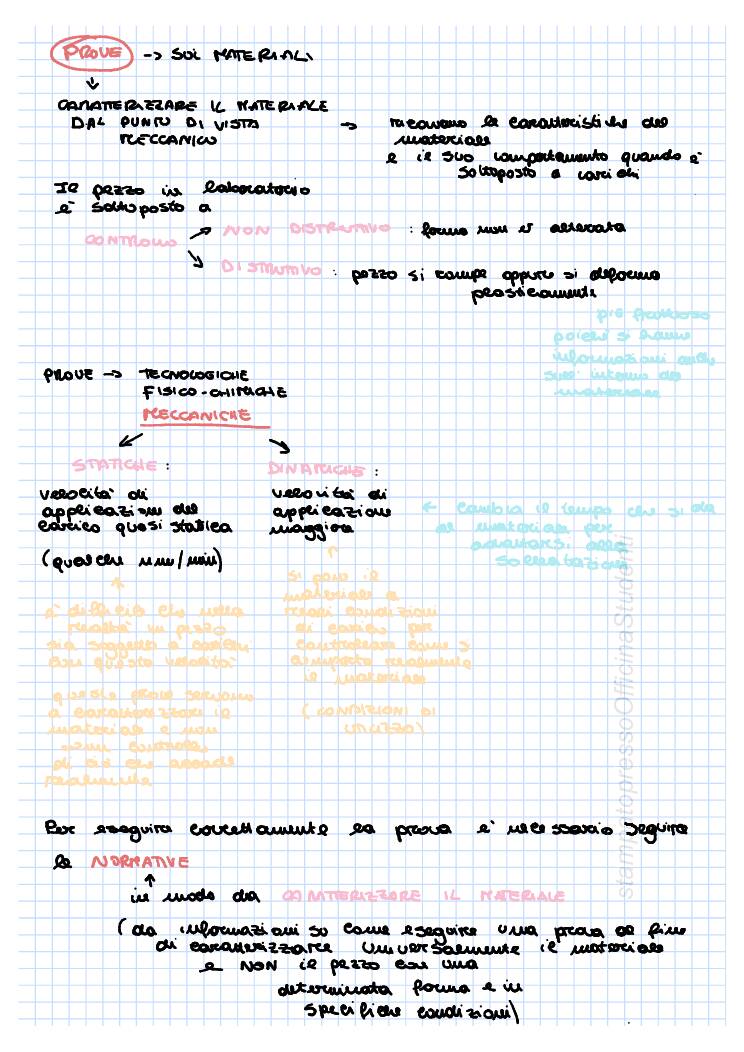 PROVE -> SUI MATERIALI
CARATTERIZZARE IL MATERIALE
DAL PUNTO DI VISTA
MECCANICO
-> ricavano le caratteristiche del
materiale
e il suo comportamento quando è
sottoposto a carichi
Il pezzo in laboratorio
è sottoposto a
CONTROLLO
NON DISTRUTTIVO : forma non è alterata
DISTRUTTIVO : pezzo si rompe oppure si deforma
plasticamente
più
poiché si hanno
informazioni anche
sull'interno del
materiale
PROVE -> TECNOLOGICHE
FISICO-CHIMICHE
MECCANICHE
STATICHE :
velocità di
applicazione del
carico quasi statica
(qualche mm/min)
è difficile che nella
realtà un pezzo
sia soggetto a carichi
con questa velocità
queste prove servono
a caratterizzare il
materiale e non
controllo
di ciò che accade
realmente
DINAMICHE :
velocità di
applicazione
maggiore
<- cambia il tempo che si dà
al materiale per
adattarsi alla
sollecitazione
si pone il
materiale a
reali condizioni
di carico per
controllare come si
comporta realmente
il materiale
(CONDIZIONI DI
UTILIZZO)
Per eseguire correttamente la prova è necessario seguire
le NORMATIVE
in modo da CARATTERIZZARE IL MATERIALE
(da informazioni su come eseguire una prova al fine
di caratterizzare universalmente il materiale
e NON il pezzo con una
determinata forma e in
specifiche condizioni)
stampatopressoOfficinaStudenti